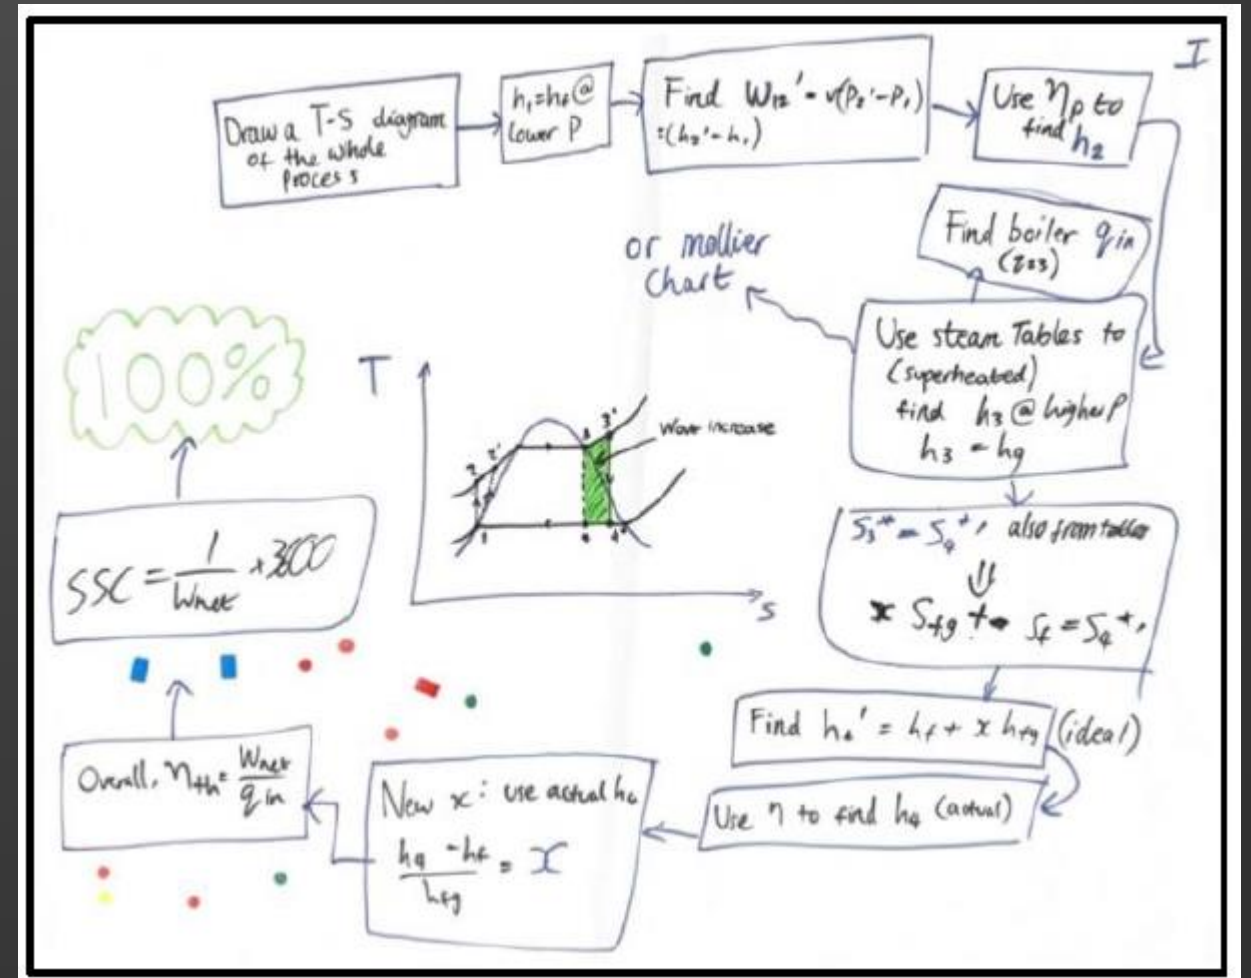 I
Draw a T-S diagram
of the whole
process
h₁=hf@
lower P
Find W₁₂' = v(P₂'-P₁)
=(h₂'-h₁)
Use ηp to
find h₂
Find boiler qin
Use steam Tables to
(superheated)
find h₃ @ higher P
h₃ = hg
or mollier
chart
also from tables
x Sfg + Sf = S₄
Find = hf + x hfg (ideal)
Use η to find h₄ (actual)
New x: use actual h₄
h₄ - hf
hfg
= x
Overall, ηth = Wnet
qin
SSC = 1
Wnet
3600
100%
T
2
2'
3'
1
Work increase
S